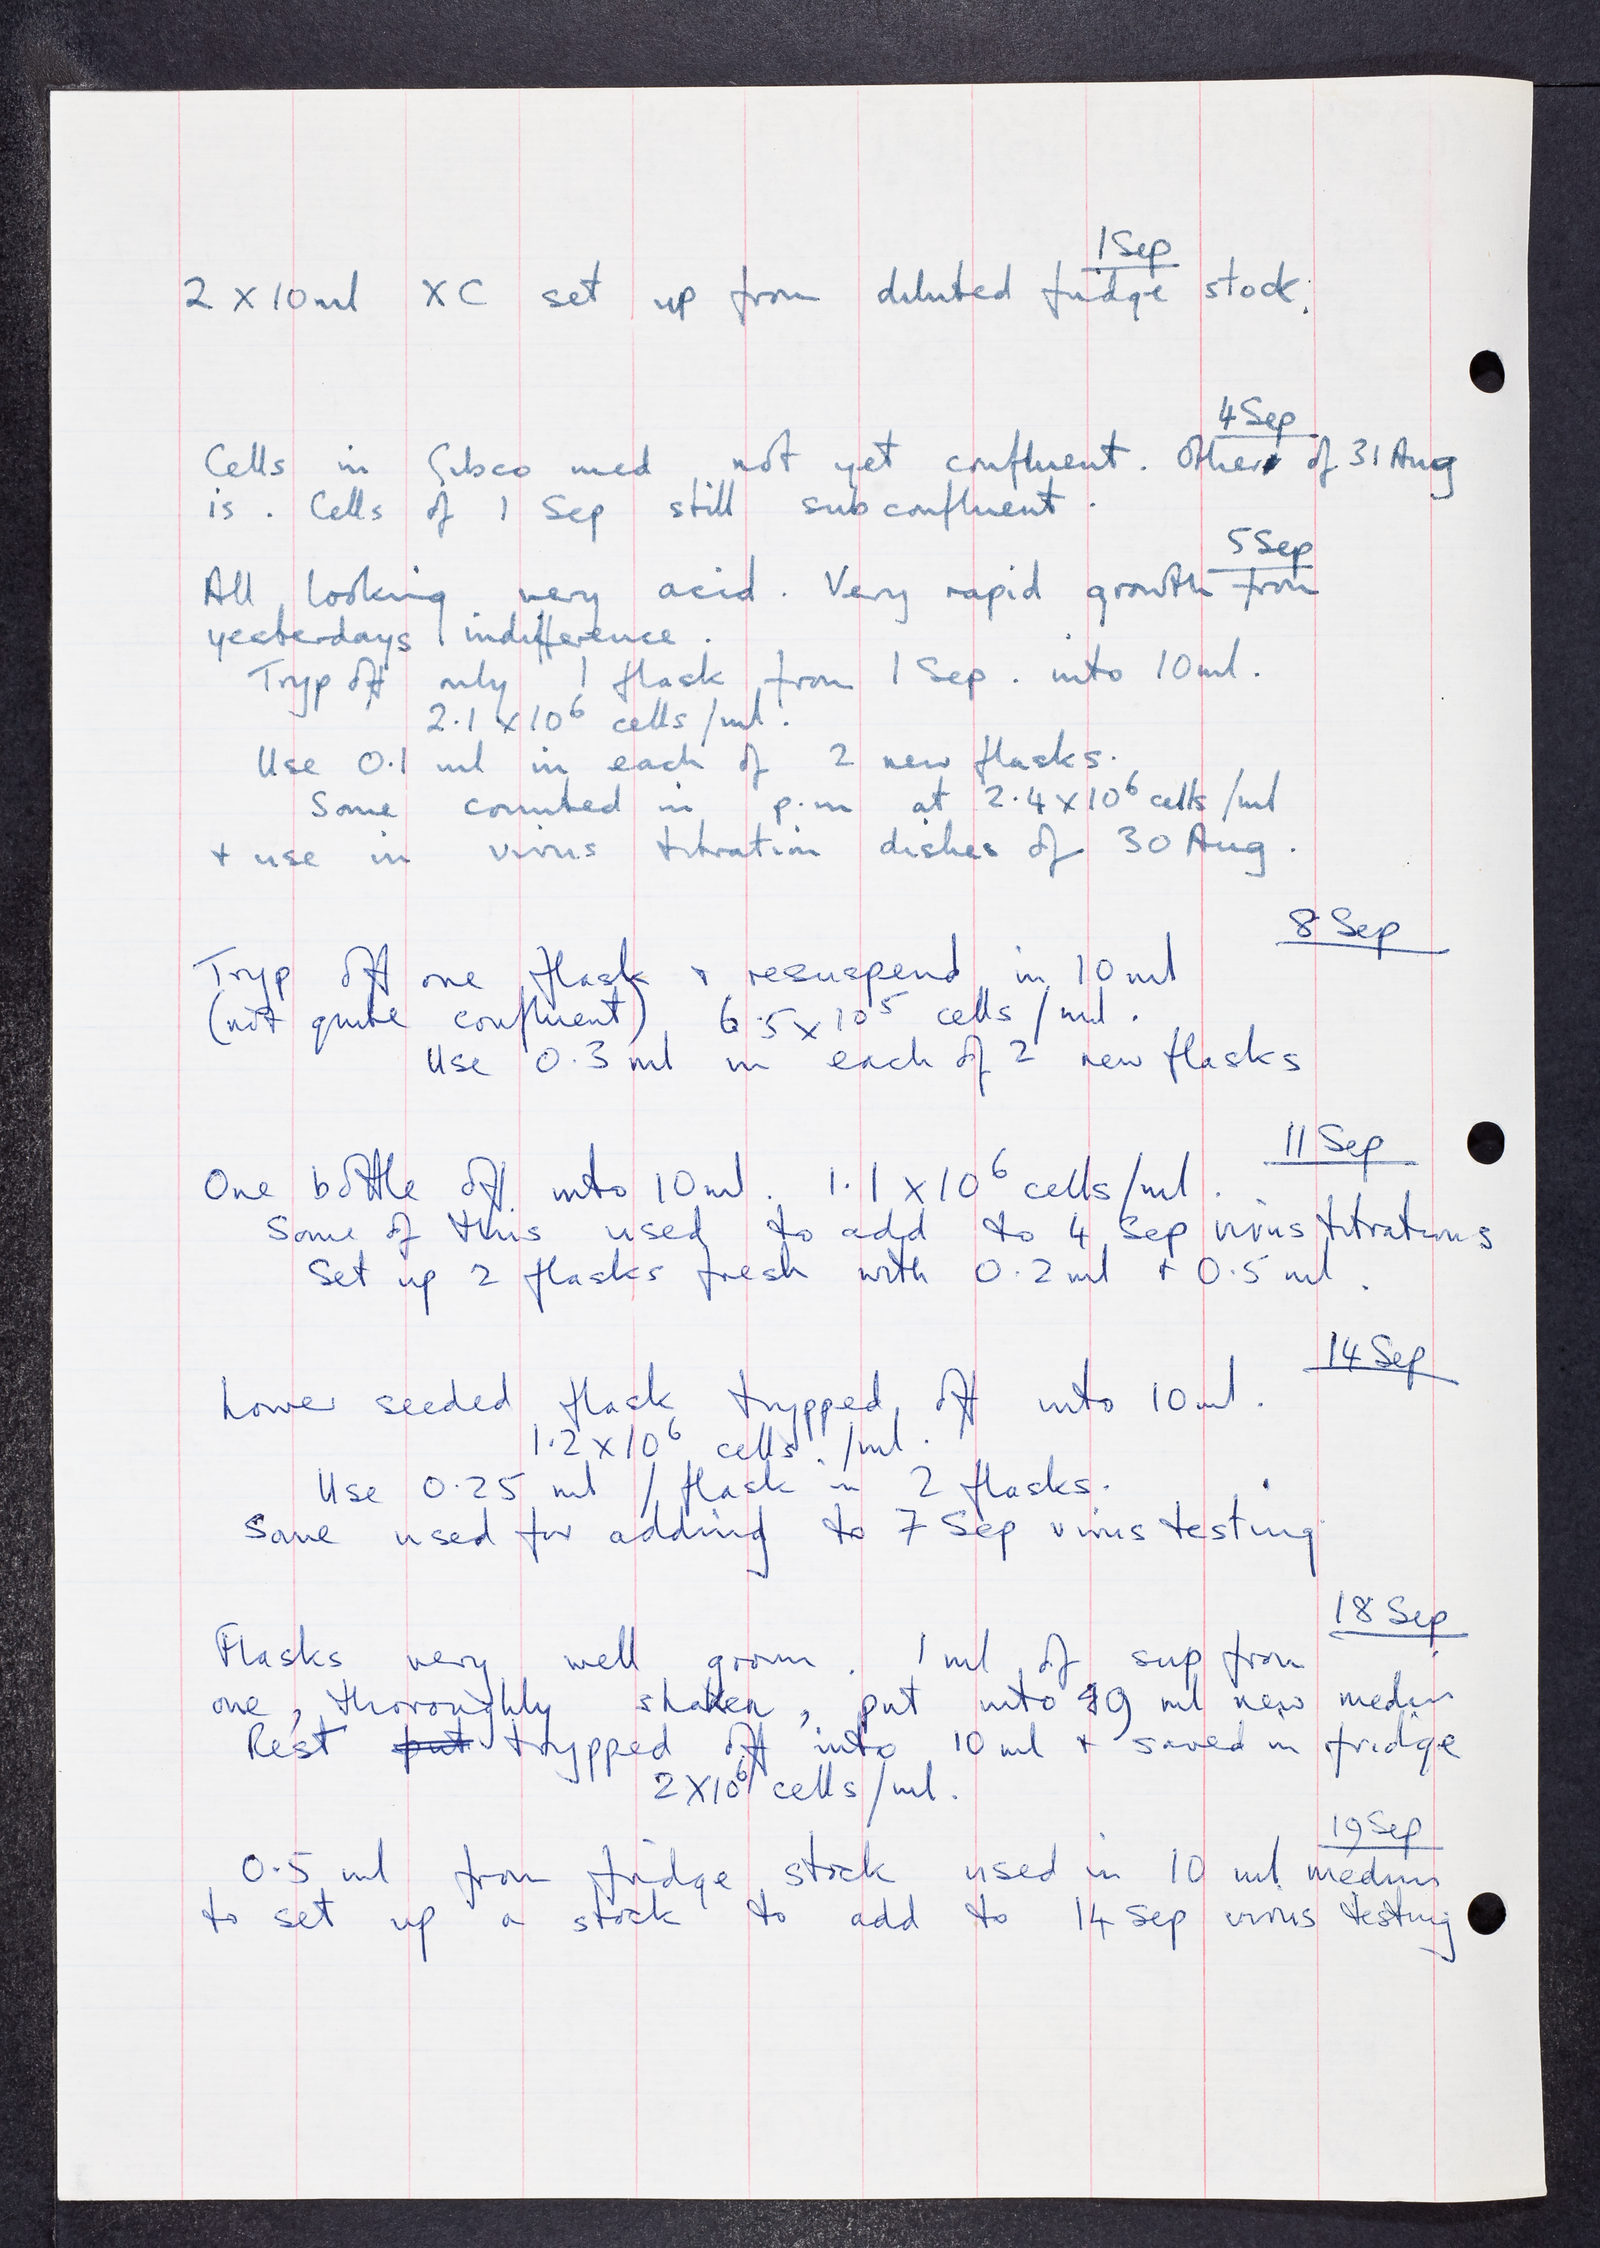 1 Sep
2 x 10 ml XC set up from diluted fridge stock.
4 Sep
Cells in Gibco med not yet confluent. Other of 31 Aug
is. Cells of 1 Sep still subconfluent.
5 Sep
All looking very acid. Very rapid growth from
yesterdays indifference.
Tryp off only 1 flask from 1 Sep. into 10 ml.
2.1 x 10⁶ cells/ml.
Use 0.1 ml in each of 2 new flasks.
Some counted in p.m at 2.4 x 10⁶ cells/ml
+ use in virus titration dishes of 30 Aug.
8 Sep
Tryp off one flask + resuspend in 10 ml
(not quite confluent) 6.5 x 10⁵ cells/ml.
Use 0.3 ml in each of 2 new flasks
11 Sep
One bottle off into 10 ml. 1.1 x 10⁶ cells/ml.
Some of this used to add to 4 Sep virus titrations
Set up 2 flasks fresh with 0.2 ml + 0.5 ml.
14 Sep
Lower seeded flask trypped off into 10 ml.
1.2 x 10⁶ cells./ml.
Use 0.25 ml / flask in 2 flasks.
Some used for adding to 7 Sep virus testing
18 Sep
Flasks very well grown. 1 ml of sup from
one, thoroughly shaken, put into 19 ml new medium
Rest put trypped off into 10 ml + saved in fridge
2 x 10⁶ cells/ml.
19 Sep
0.5 ml from fridge stock used in 10 ml medium
to set up a stock to add to 14 Sep virus testing